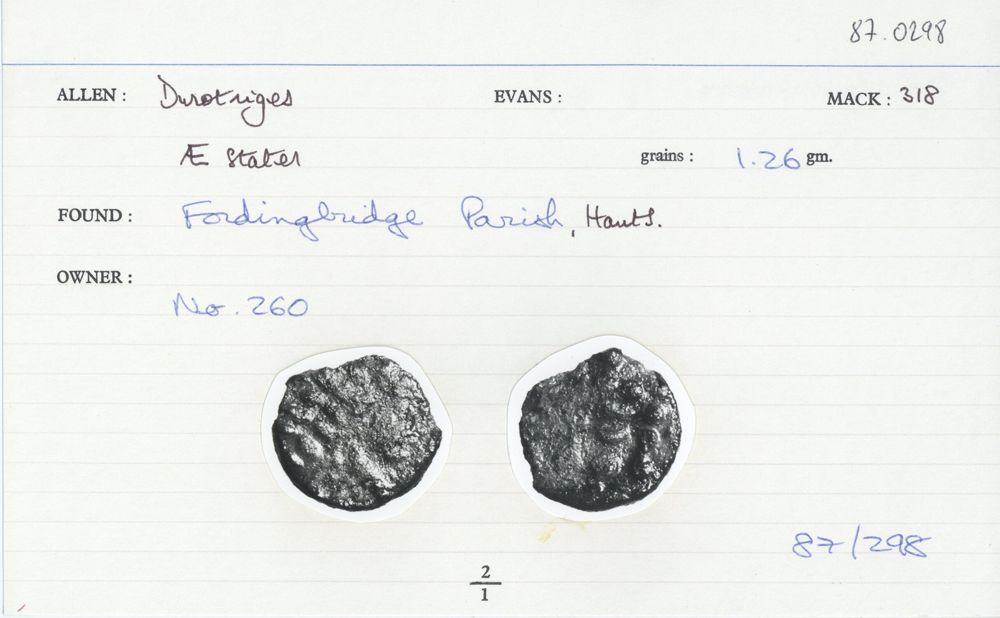 87.0298
ALLEN : Durotriges EVANS : MACK : 318
Æ Stater grains : 1.26 gm.
FOUND : Fordingbridge Parish, Hants.
OWNER :
No. 260
87/298
2
1